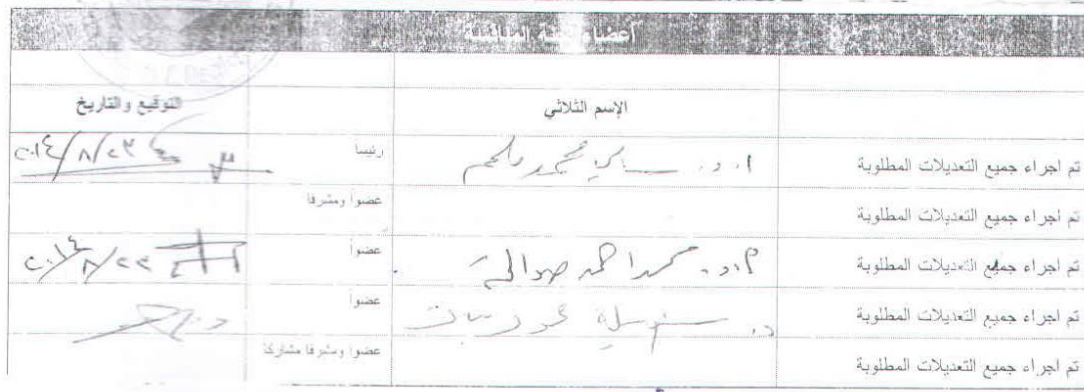 أعضاء لجنة المناقشة
الإسم الثلاثي التوقيع والتاريخ
تم اجراء جميع التعديلات المطلوبة أ.د. سامي محمد ملحم رئيسا ٢٠١٤/٨/٢٣
تم اجراء جميع التعديلات المطلوبة عضوا ومشرفا
تم اجراء جميع التعديلات المطلوبة أ.د. محمد احمد صوالحة عضوا ٢٠١٤/٨/٢٣
تم اجراء جميع التعديلات المطلوبة د. عضوا
تم اجراء جميع التعديلات المطلوبة عضوا ومشرفا مشاركا